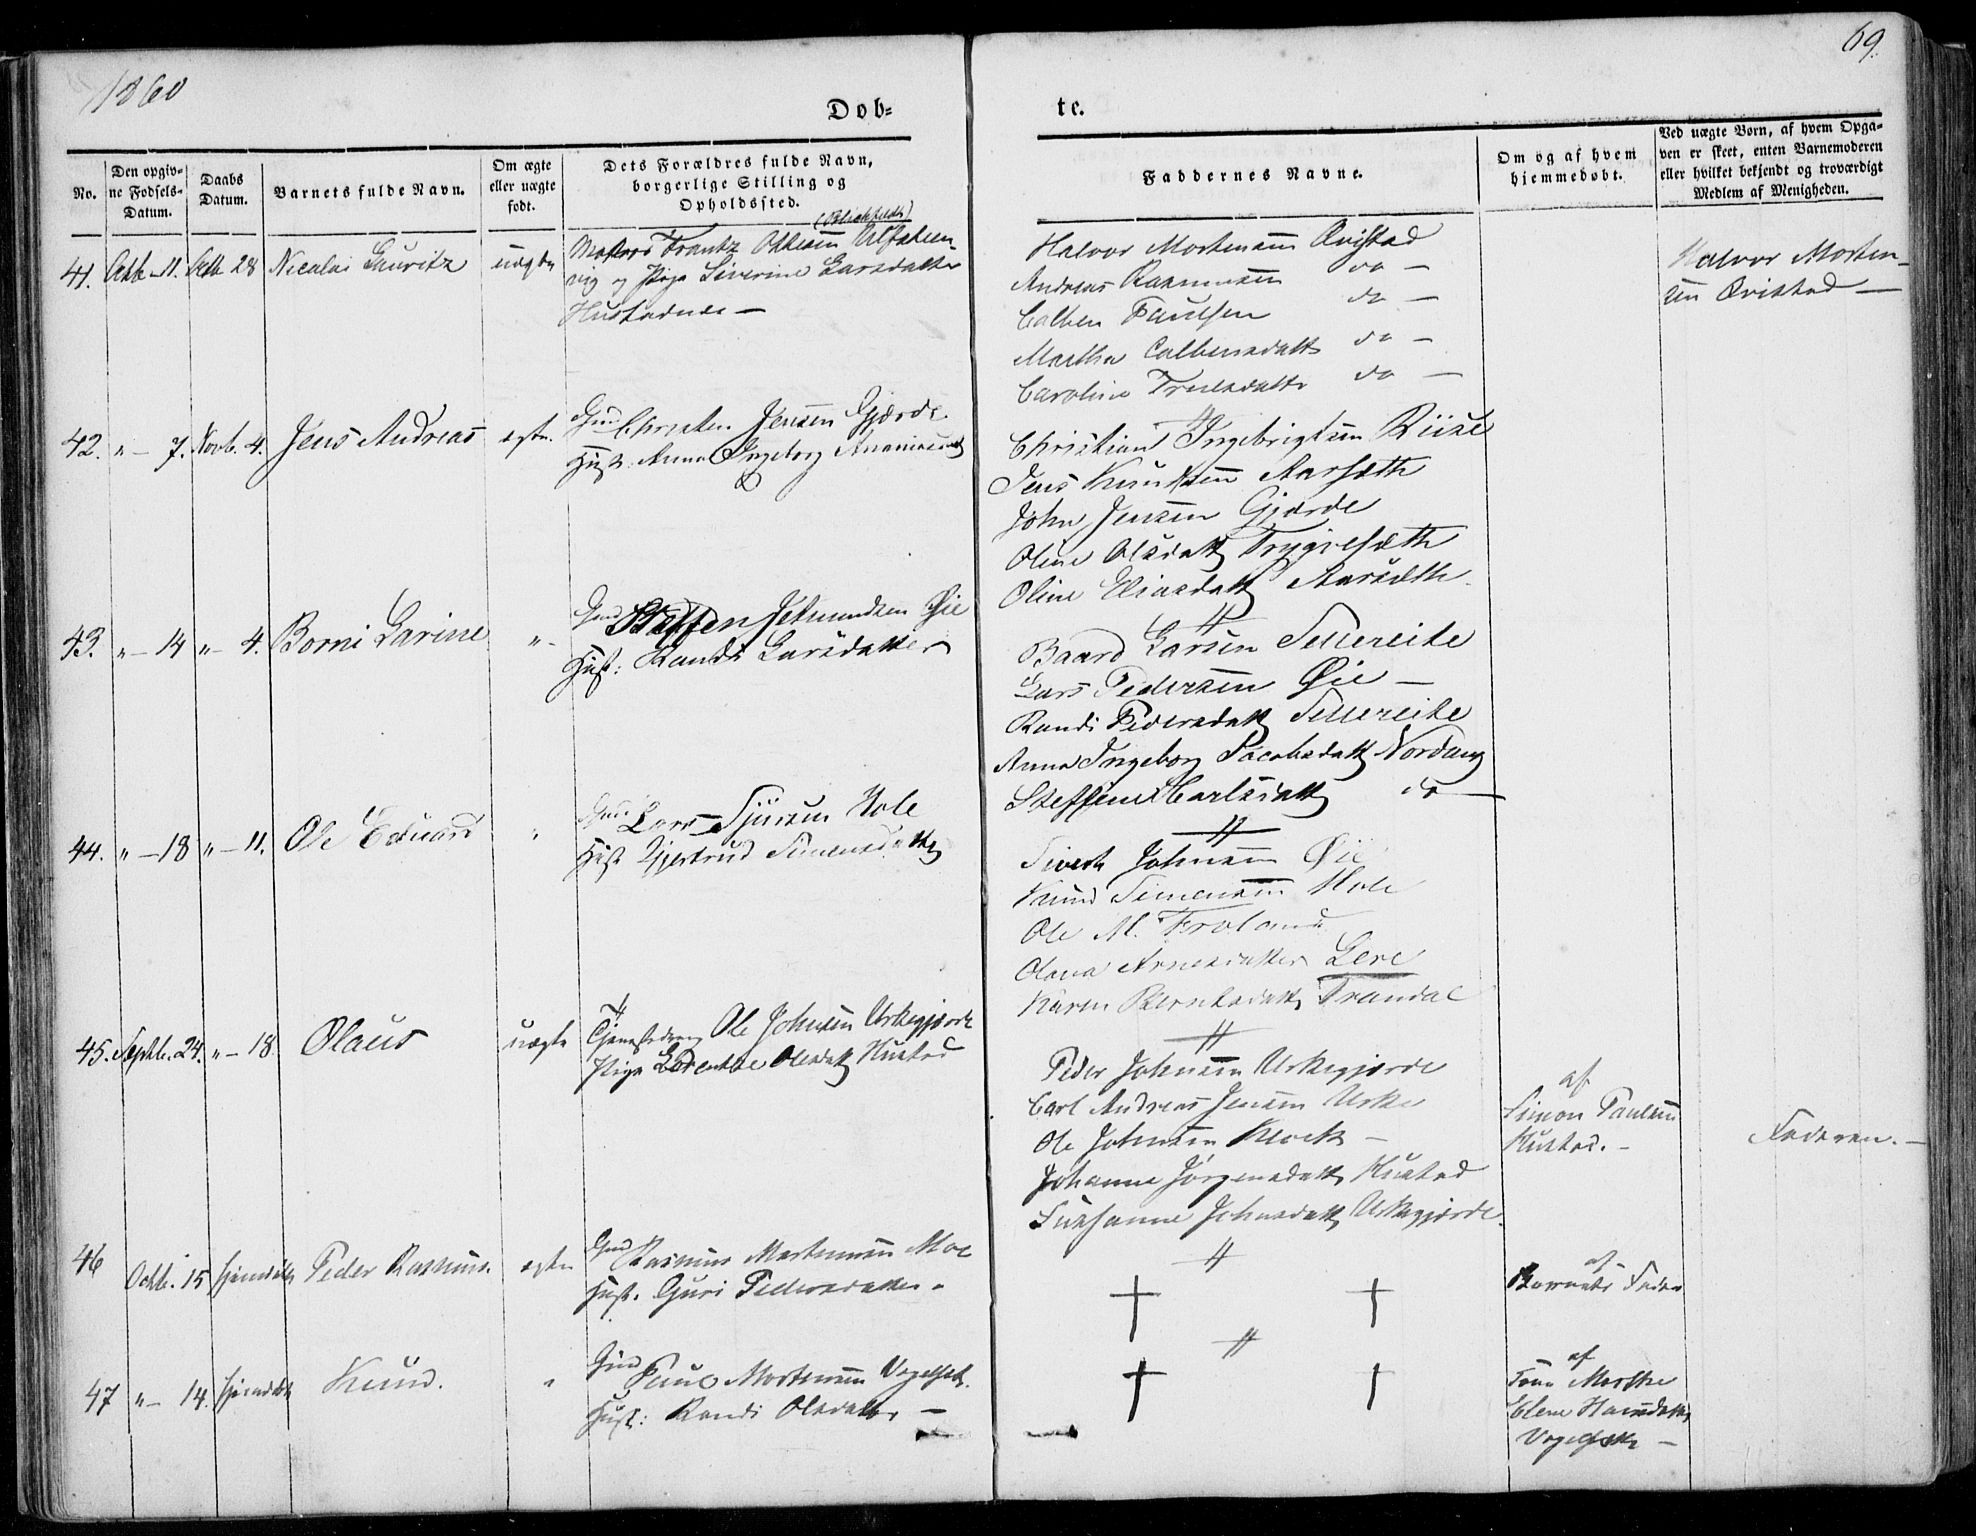 1860
69.
Døb-
te.
No.
Den opgiv-
ne Fødsels-
Datum.
Daabs
Datum.
Barnets fulde Navn.
Om ægte
eller uægte
født.
Dets Forældres fulde Navn,
borgerlige Stilling og
Opholdssted.
Faddernes Navne.
Om og af hvem
hjemmedøbt.
Ved uægte Børn, af hvem Opga-
ven er skeet, enten Barnemoderen
eller hvilket bekjendt og troværdigt
Medlem af Menigheden.
41. Octb. 11. Octb 28 Nicolai Lauritz uægte
Matros Frantz
vig og Pige Severine Larsdatter
Hustadnes –
Halvor Mortensen Qvistad
Andreas Rasmussen do –
Colben Paulsen do –
Martha Colbensdatt do –
Caroline Truelsdatte do –
Halvor Morten-
sen Qvistad –
42. " – 7. Novb. 4. Jens Andreas ægte.
Gmd Christen Jensen Gjærde.
Hust. Anna Ingeborg Ananiasdatt
Christian Ingebrigtsen Riise
Jens Knudsen Aarsæth
John Jensen Gjærde
Oline Olsdatt Trygvesæth
Oline Eliasdatt Aarsæth.
43. " – 14 " – 4. Borni Larine " –
Gmd Steffen Jetmundsen Øie
Hust: Randi Larsdatter
Baard Larsen Sellereite
Lars Pedersen Øie –
Randi Pedersdatt Sellereite
Anna Ingeborg Jacobsdatt Nordang
Steffine Carlsdatt do –
44. " – 18 " – 11. Ole Eduard "
Gmd Lars Sjursen Hole
Hust Gjertrud Simensdatte
Sivert Johnsen Øie
Knud Simensen Hole
Ole M. Froland
Olava Arnesdatter Lere
Karen Berntsdatt Trandal
45. Septb. 24. " – 18 Olaus uægte
Tjenestedreng Ole Johnsen Urkegjærde
Pige Lorentse Olesdatt Hustad
Peder Johnsen Urkegjærde
Carl Andreas Jensen Urke
Ole Johnsen Klock –
Johanne Jørgensdatt Hustad
Susanne Johnsdatt Urkegjærde.
af
Simon Paulsen
Hustad. –
Faderen. –
46 Octb. 15 hjemdøbt Peder Rasmus. ægte
Gmd Rasmus Mortensen Moe
Hust. Guri Pedersdatter –
af
Barnets Fader
47 " – 14. hjemdøbt Knud. "
Gmd Paul Mortensen Vogelsæt.
Hust: Randi Olsdatter –
af
Marthe
Elene Hansdatte
Vogelsæth –